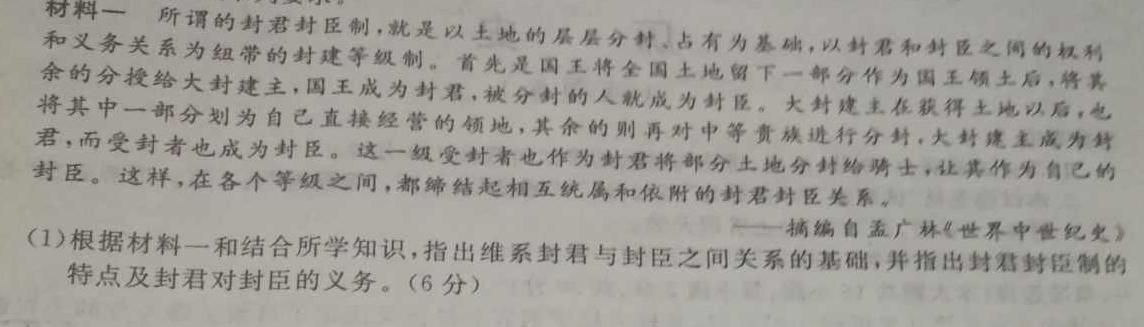 材料一 所谓的封君封臣制,就是以土地的层层分封、占有为基础,以封君和封臣之间的权利
和义务关系为纽带的封建等级制。首先是国王将全国土地留下一部分作为国王领土后,将其
余的分授给大封建主,国王成为封君,被分封的人就成为封臣。大封建主在获得土地以后,也
将其中一部分划为自己直接经营的领地,其余的则再对中等贵族进行分封,大封建主成为封
君,而受封者也成为封臣。这一级受封者也作为封君将部分土地分封给骑士,让其作为自己的
封臣。这样,在各个等级之间,都缔结起相互统属和依附的封君封臣关系。
——摘编自孟广林《世界中世纪史》
(1)根据材料一和结合所学知识,指出维系封君与封臣之间关系的基础,并指出封君封臣制的
特点及封君对封臣的义务。(6分)